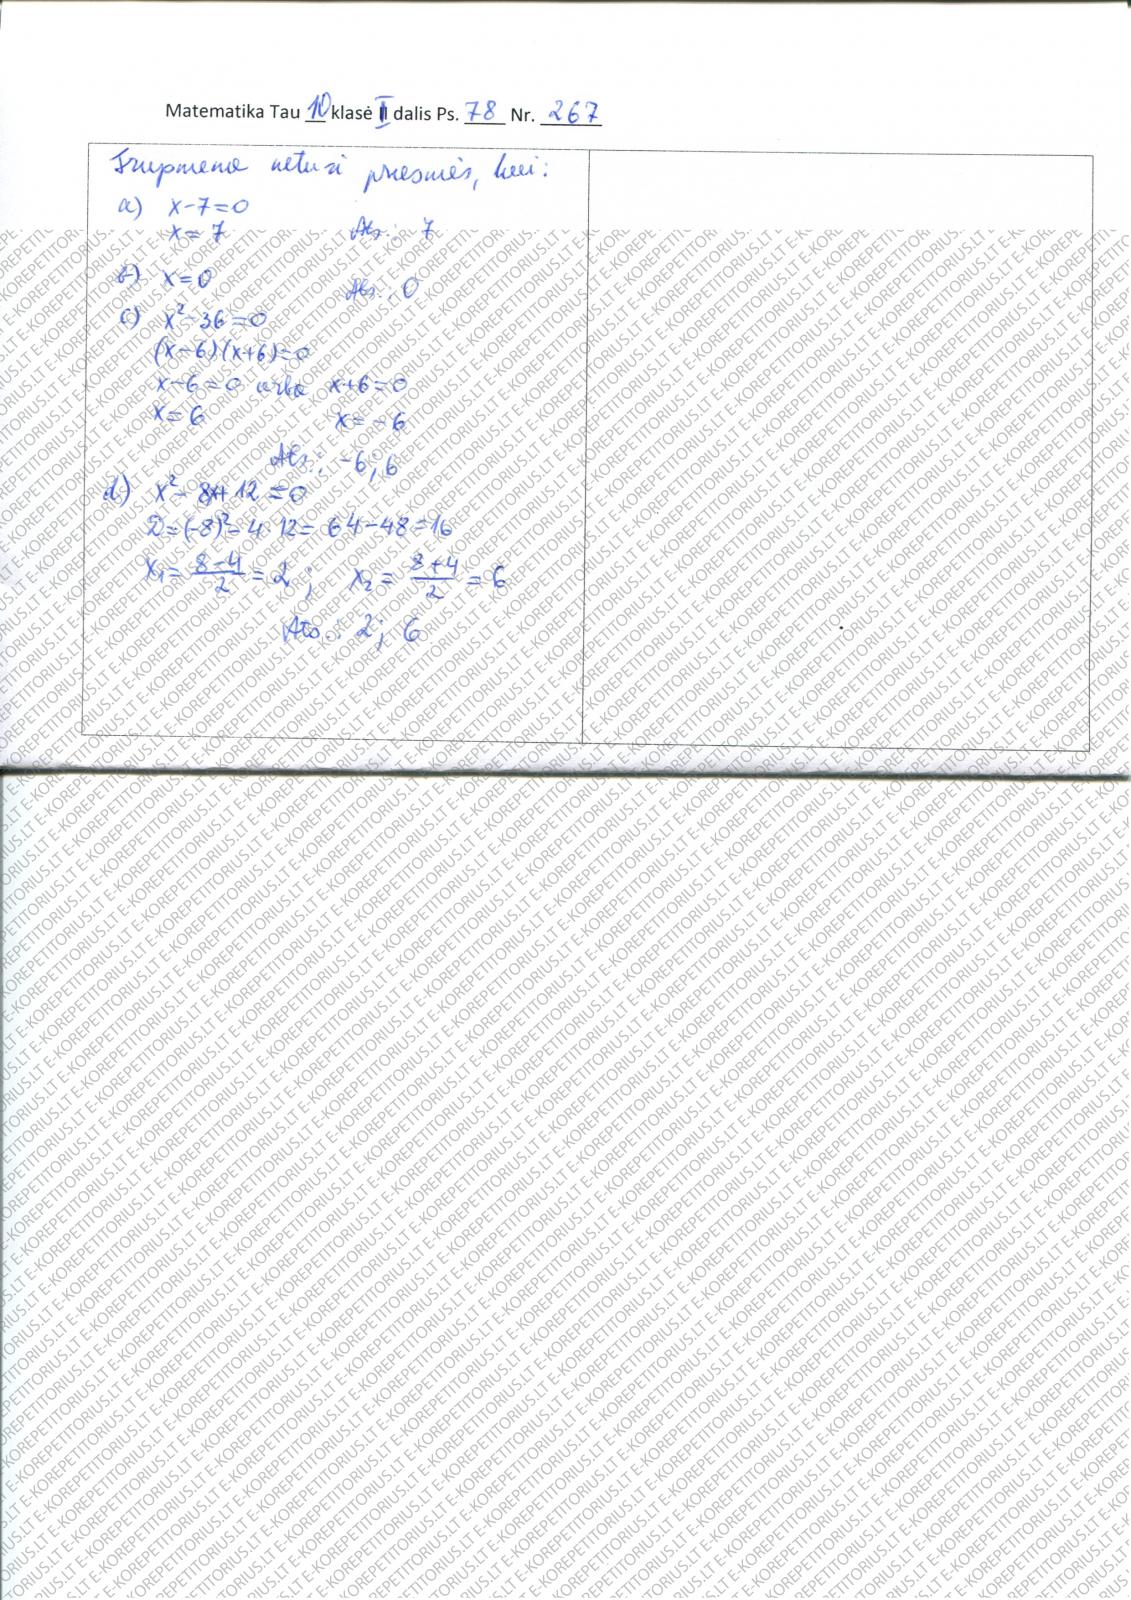 Matematika Tau 10 klasė I dalis Ps. 78 Nr. 267
Trupmena neturi prasmės, kai:
a) x-7=0
x=7 Ats.: 7
b) x=0
Ats.: 0
c) x²-36=0
(x-6)(x+6)=0
x-6=0 arba x+6=0
x=6 x=-6
Ats.: -6; 6
d) x²-8x+12=0
D=(-8)²-4·12=64-48=16
x₁=(8-4)/2=2; x₂=(8+4)/2=6
Ats.: 2; 6
E-KOREPETITORIUS.LT